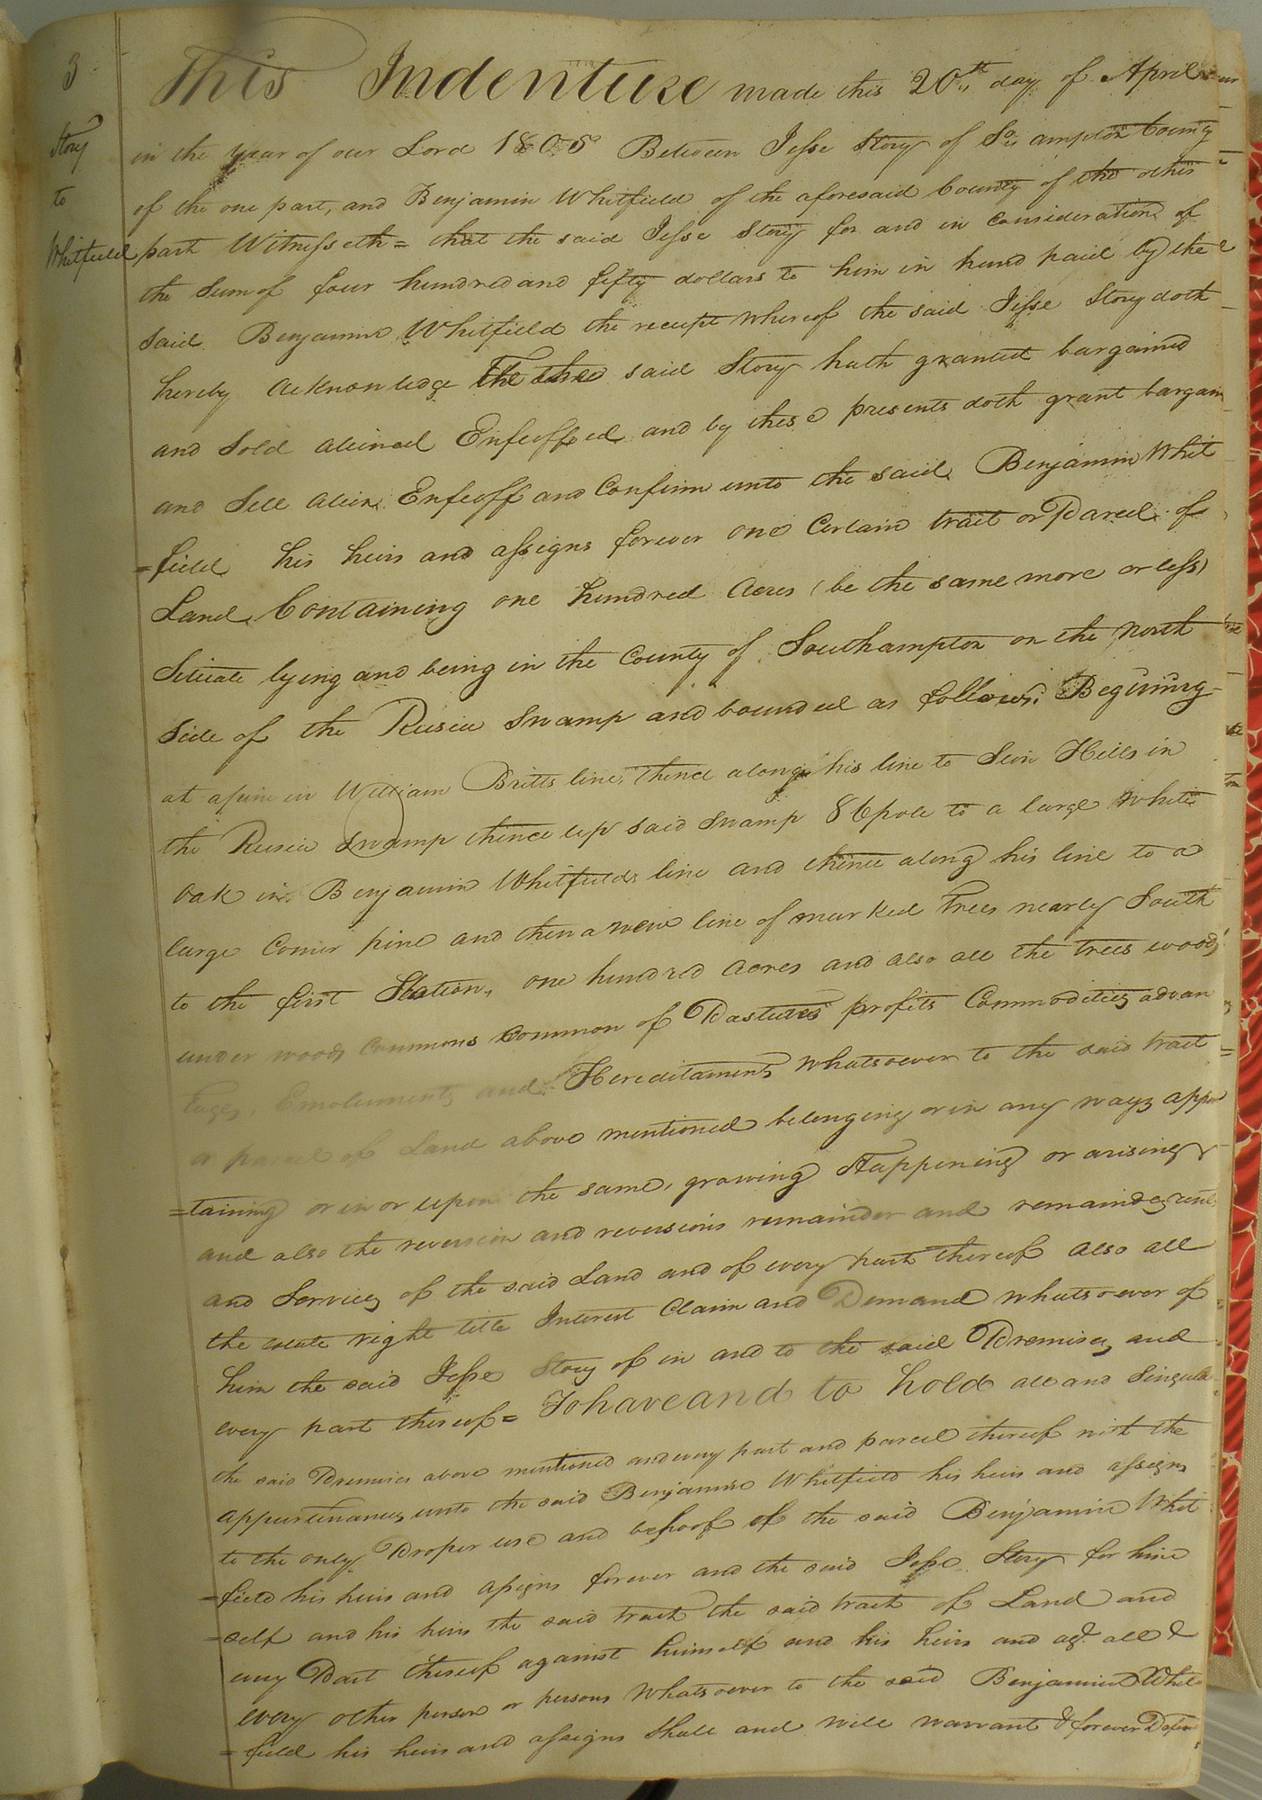 3
Story
to
Whitfield
This Indenture made this 20th day of April
in the year of our Lord 1805 Between Jesse Story of So. ampton County
of the one part, and Benjamin Whitfield of the aforesaid County of the other
part Witnesseth = that the said Jesse Story for and in Consideration of
the Sum of four hundred and fifty dollars to him in hand paid by the
said Benjamin Whitfield the receipt whereof the said Jesse Story doth
hereby acknowledge the said Story hath granted bargained
and Sold aliened Enfeoffed and by these presents doth grant bargain
and Sell alien Enfeoff and Confirm unto the said Benjamin Whit
=field his heirs and assigns forever one Certain tract or Parcel of
Land Containing one hundred Acres (be the same more or less)
Situate lying and being in the County of Southampton on the North
side of the Swamp and bounded as follows. Begining
at a pine in William Britts line, thence along his line to Hills in
the Swamp thence up said Swamp 86 pole to a large White
Oak in Benjamin Whitfields line and thence along his line to a
large Corner pine and then a new line of marked Trees nearly South
to the first Station, one hundred acres and also all the trees woods
under woods Commons Common of Pastures profits Commodities advan
tages, Emoluments and Hereditaments whatsoever to the said tract
or parcel of Land above mentioned belonging or in any ways apper
=taining or in or upon the same, growing Happening or arising
and also the reversion and reversions remainder and remainders rents
and Services of the said Land and of every part thereof also all
the estate right title Interest Claim and Demand whatsoever of
him the said Jesse Story of in and to the said Premises and
every part thereof = To have and to hold all and Singular
the said Premises above mentioned and every part and parcel thereof with the
appurtenances unto the said Benjamin Whitfield his heirs and assigns
to the only Proper use and behoof of the said Benjamin Whit
=field his heirs and assigns forever and the said Jesse Story for him
=self and his heirs the said tract the said tract of Land and
every Part thereof against himself and his heirs and agt. all &
every other person or persons whatsoever to the said Benjamin Whit
=field his heirs and assigns Shall and will warrant & forever Defend